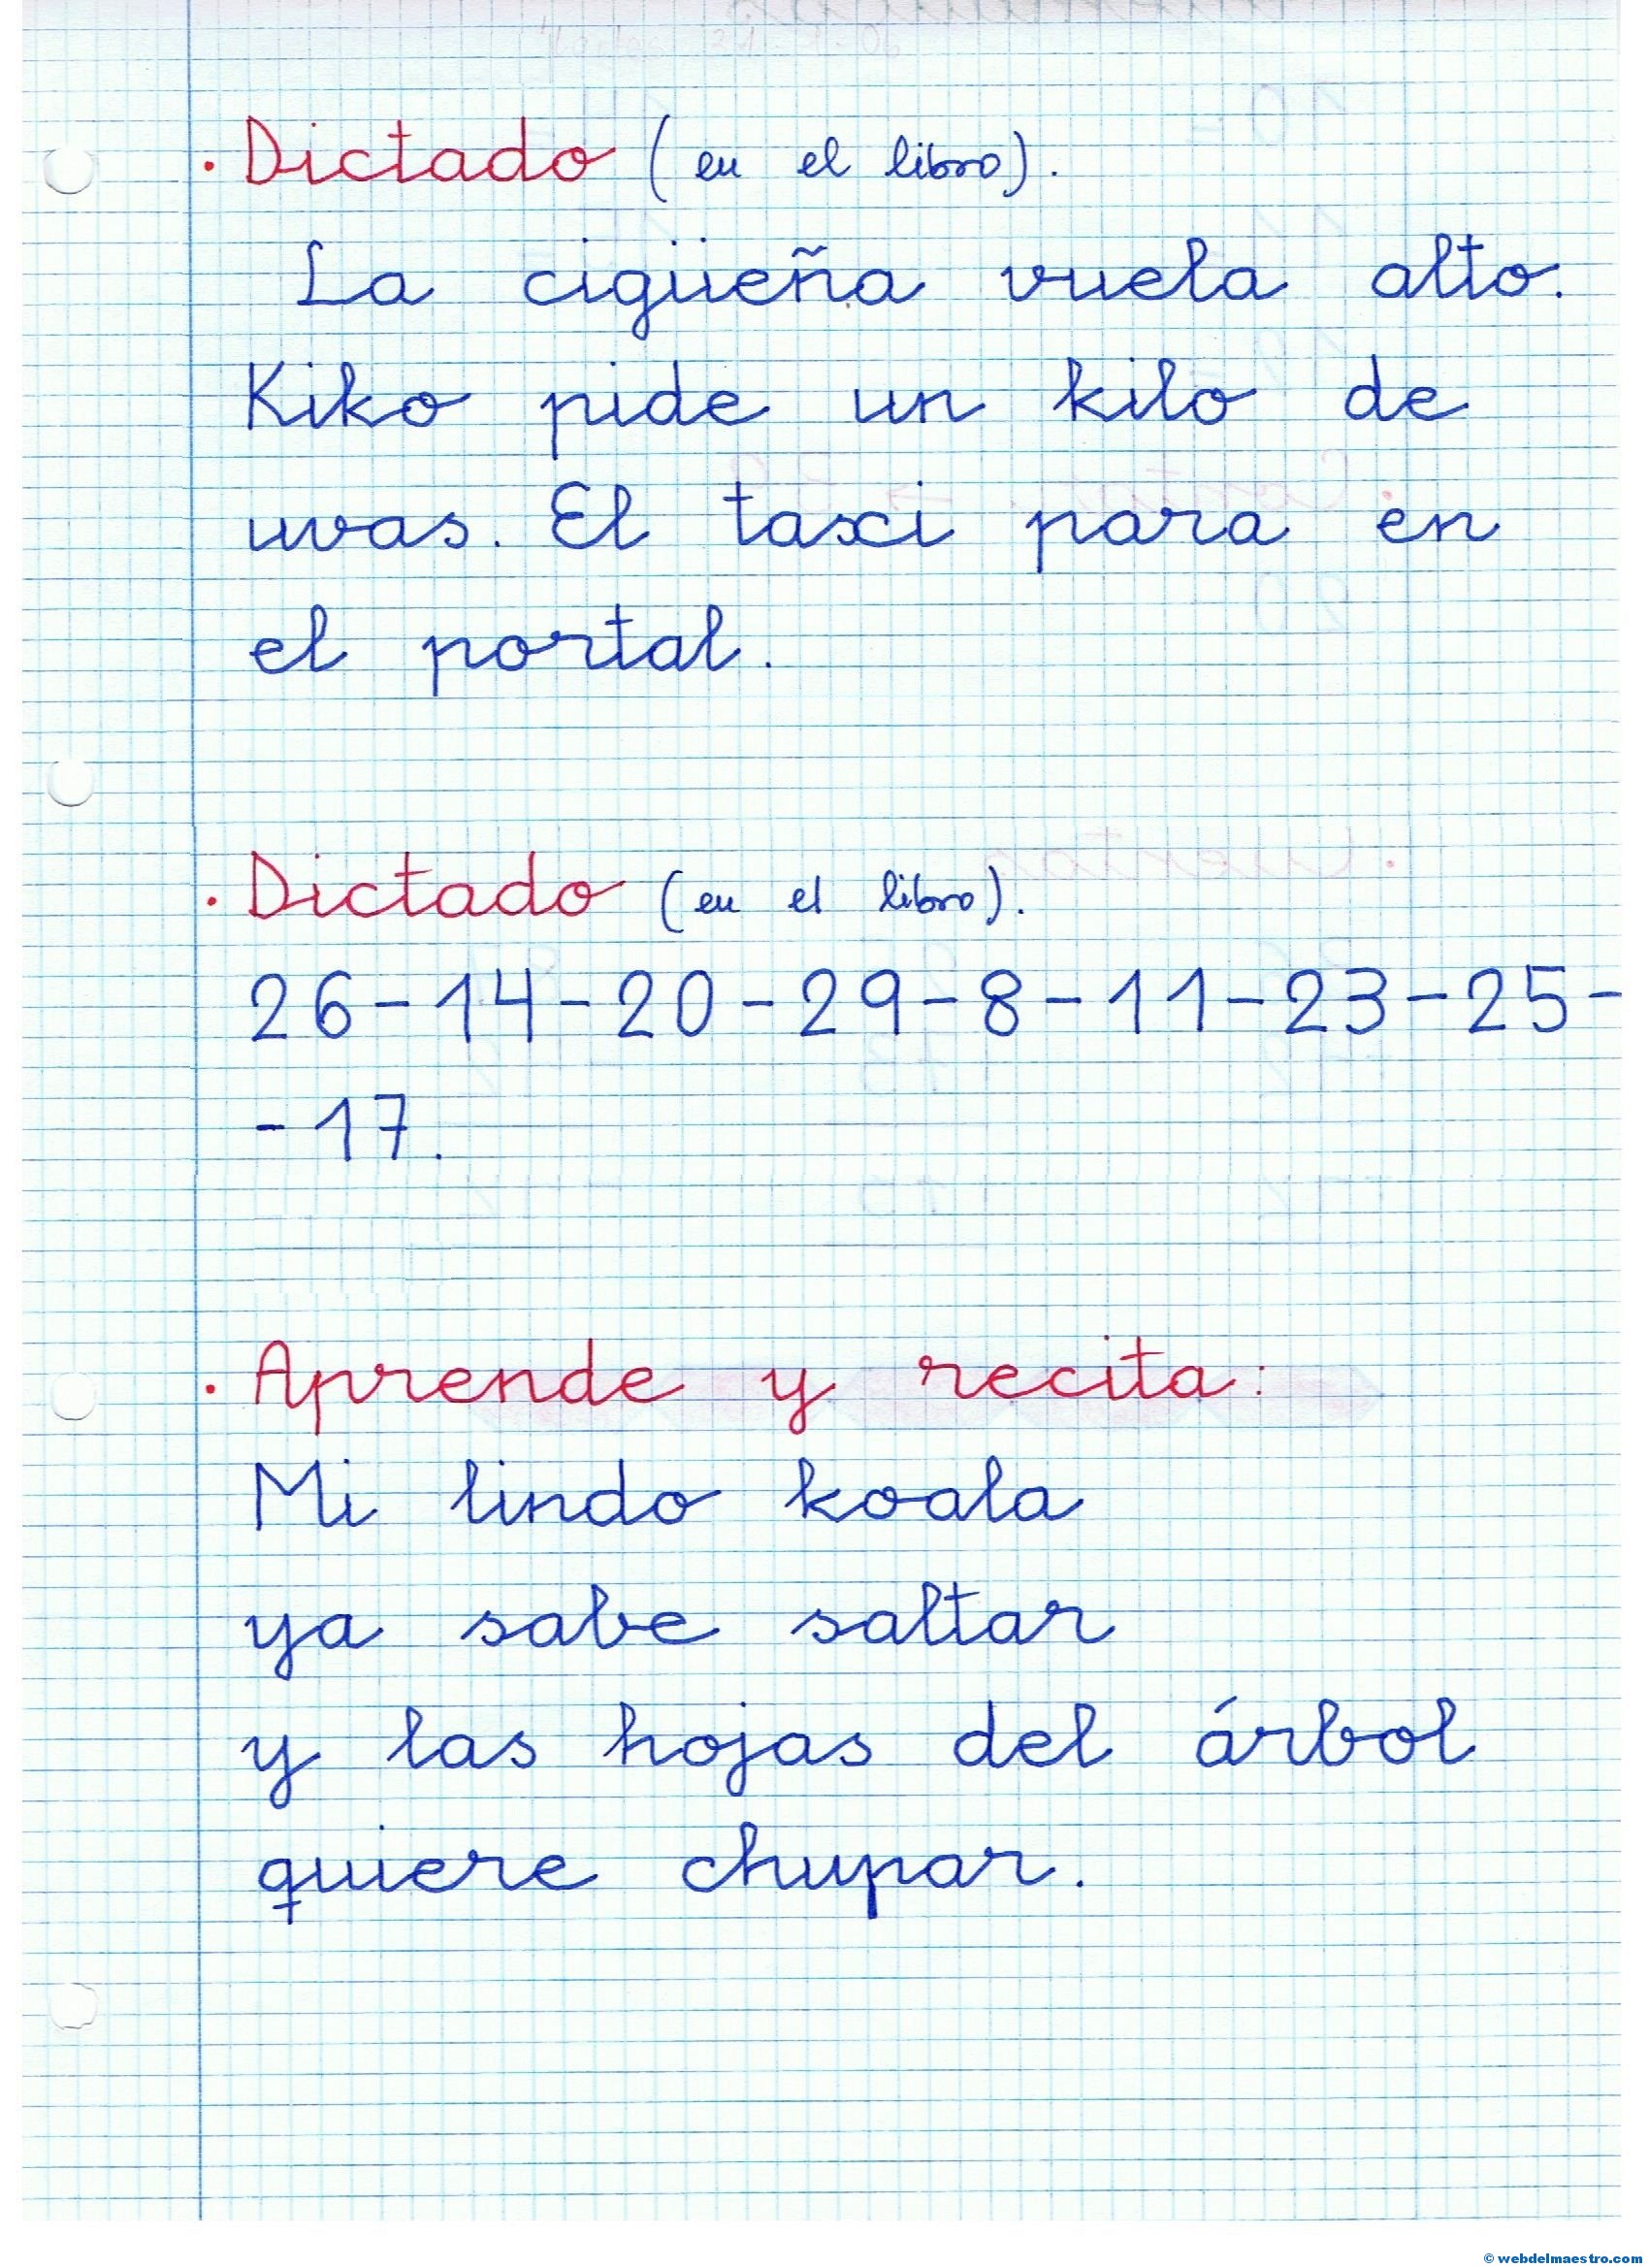 · Dictado (en el libro).
La cigüeña vuela alto.
Kiko pide un kilo de
uvas. El taxi para en
el portal.
· Dictado (en el libro).
26-14-20-29-8-11-23-25-
-17.
· Aprende y recita:
Mi lindo koala
ya sabe saltar
y las hojas del árbol
quiere chupar.
© webdelmaestro.com